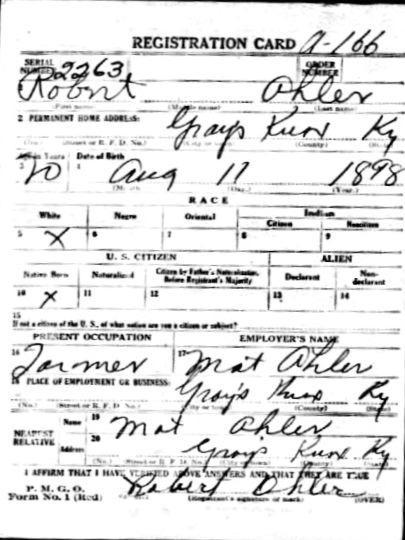 REGISTRATION CARD A-166
SERIAL NUMBER 2263 ORDER NUMBER
Robert Ohler
(First name) (Middle name) (Last name)
2 PERMANENT HOME ADDRESS:
Grays Knox Ky
(No.) (Street or R. F. D. No.) (City or town) (County) (State)
Age in Years Date of Birth
3 20 4 Aug 17 1898
(Month) (Day) (Year)
RACE
White Negro Oriental Indian
Citizen Noncitizen
5 X 6 7 8 9
U. S. CITIZEN ALIEN
Native Born Naturalized Citizen by Father's Naturalization Before Registrant's Majority Declarant Non-declarant
10 X 11 12 13 14
15
If not a citizen of the U. S., of what nation are you a citizen or subject?
PRESENT OCCUPATION EMPLOYER'S NAME
16 Farmer 17 Mat Ohler
18 PLACE OF EMPLOYMENT OR BUSINESS:
Grays Knox Ky
(No.) (Street or R. F. D. No.) (City or town) (County) (State)
NEAREST RELATIVE Name 19 Mat Ohler
Address 20 Grays Knox Ky
(No.) (Street or R. F. D. No.) (City or town) (County) (State)
I AFFIRM THAT I HAVE VERIFIED ABOVE ANSWERS AND THAT THEY ARE TRUE
P. M. G. O.
Form No. 1 (Red) Robert Ohler
(Registrant's signature or mark) (OVER)